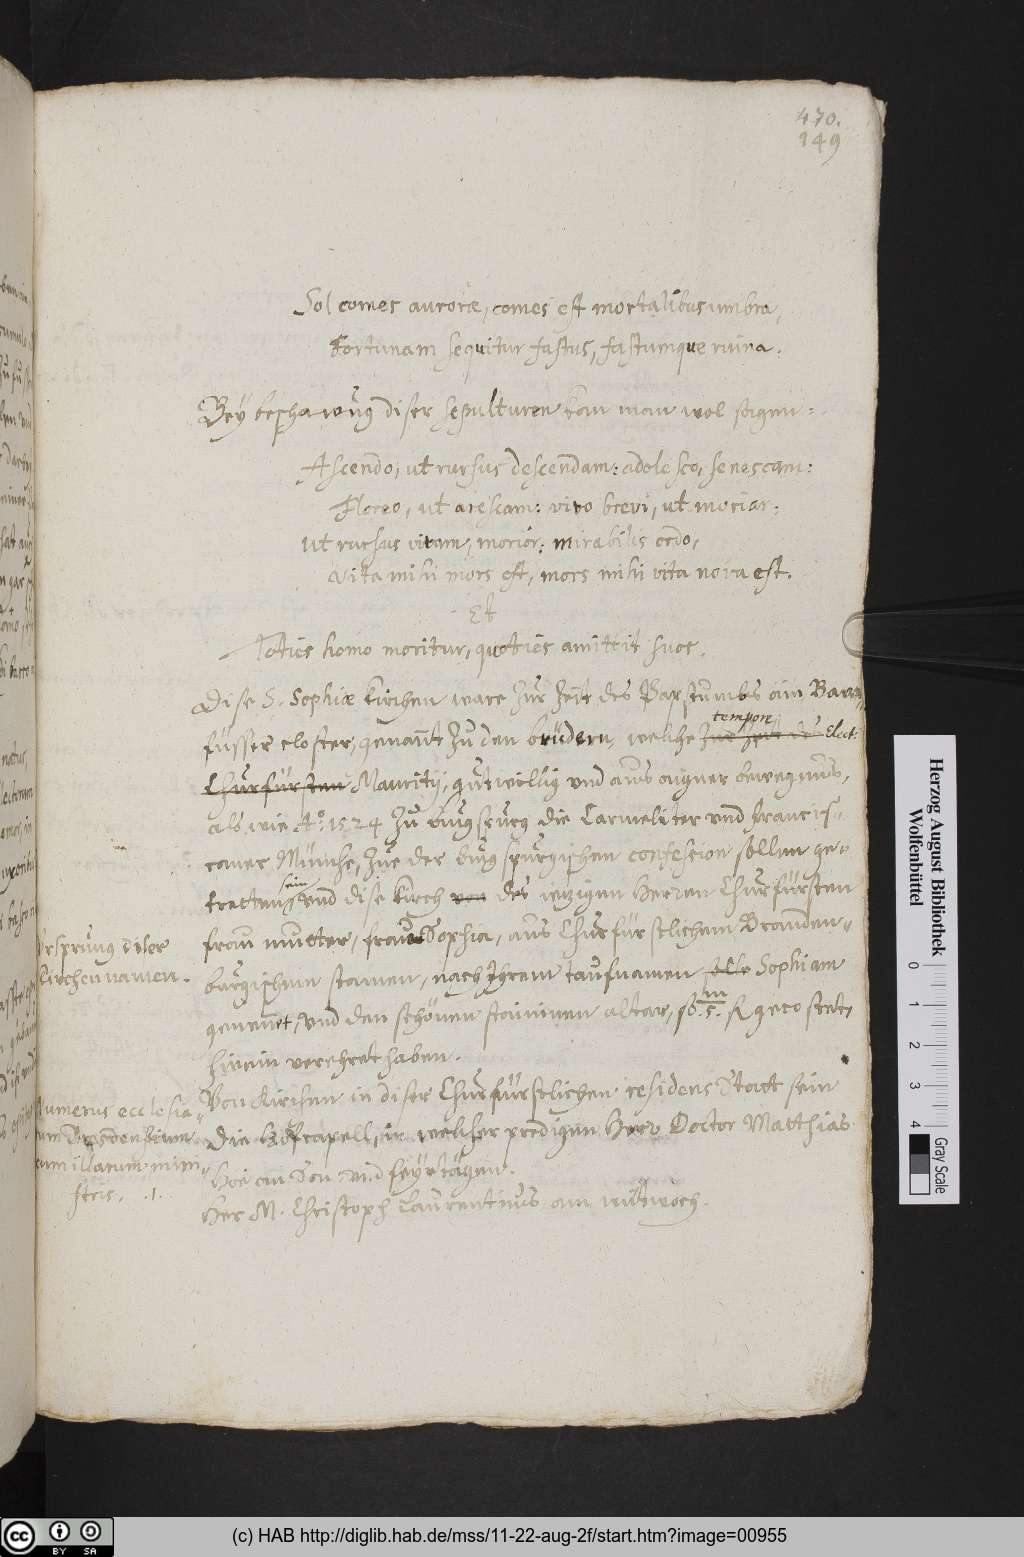 470.
149
Sol comes auroræ, comes est mortalibus umbra,
Fortunam sequitur fastus, fastumque ruina.
Bey beschawung diser sepulturen kan man wol sagen:
Ascendo, ut rursus descendam: adolesco, senescam:
Floreo, ut arescam: vivo brevi, ut moriar:
Ut rursus vivam, morior: mirabilis ordo,
Vita mihi mors est, mors mihi vita nova est.
Et
Toties homo moritur, quoties amittit suos.
Dise S. Sophiæ Kirchen ware zur Zeit des Barstumbs ain Bar
füsser closter, genannt zu den brüdern, welche zur Zeit des tempore Elect:
Churfürsten Mauritij, gutwillig und aus aigner bewegnus,
als wie Aº. 1524 zu Augspurg die Carmeliter und Francis-
caner Münche, zue der Augspurgischen confession sollen ge-
tretten sein und dise Kirch von des iezigen Herren Churfürsten
fraw mutter, fraw Sophia, aus Churfürstlichem Branden-
burgischem stamen, nach Ihrem taufnamen Sophiam
genennet, und den schönen staininen altar, so 5. m R gecostet,
hinein verehret haben.
Ursprung diser
Kirchen namen.
Von Kirchen in diser Churfürstlichen residens Statt sein
Die Hofcapell, in welcher predigen Herr Doctor Matthias
Hoe an Son und feyrtägen.
Her M. Christoph Laurentius am mitwoch.
Numerus ecclesia-
rum Dresdensium
cum illarum mini-
stris. .1.
Herzog August Bibliothek
Wolfenbüttel
0 1 2 3 4
Gray Scale
cc BY SA
(c) HAB http://diglib.hab.de/mss/11-22-aug-2f/start.htm?image=00955